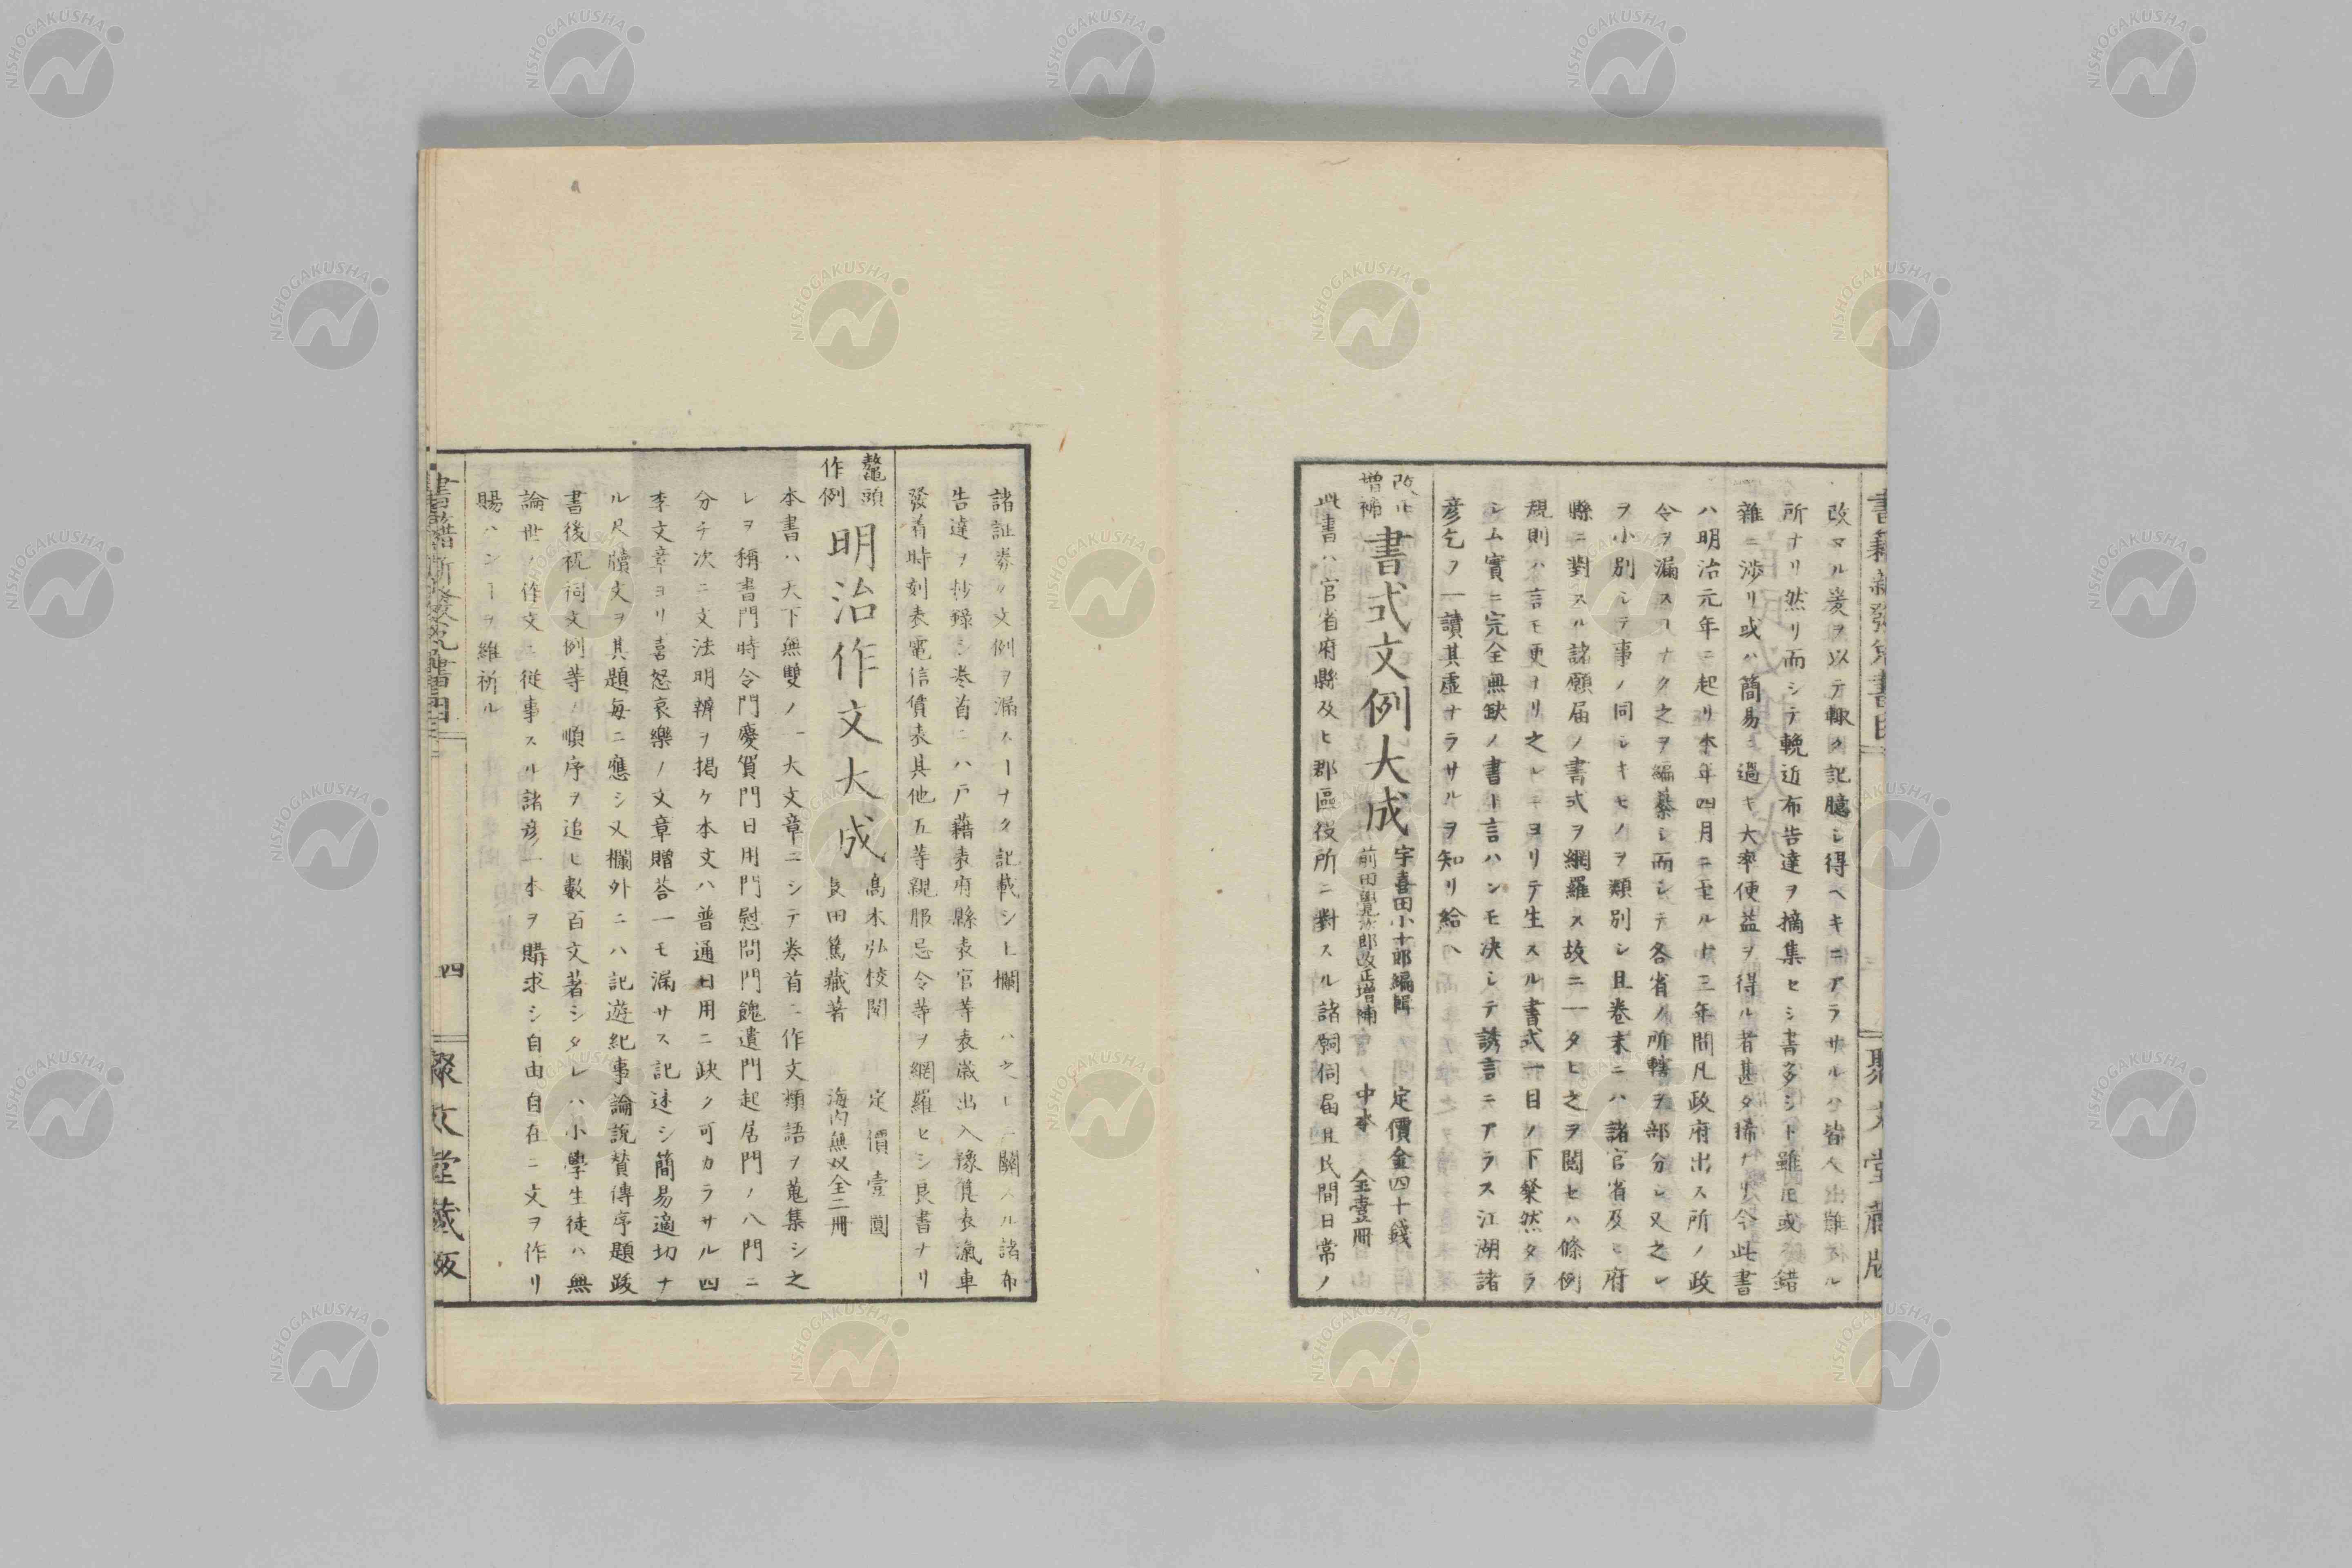 書籍新發兌書目
聚文堂藏版
改マル爰ヲ以テ輙ク記臆シ得ヘキニアラサルハ皆人出難スル
所ナリ然リ而シテ輓近布告達ヲ摘集セシ書多シト雖𪜈或ハ錯
雜ニ渉リ或ハ簡易ニ過キ大率便益ヲ得ル者甚タ稀ナリ今此書
ハ明治元年ニ起リ本年四月ニ至ル十三年間凡政府出ス所ノ政
令ヲ漏スヿナク之ヲ編纂シ而シテ各省ノ所轄ヲ部分シ又之レ
ヲ小別シテ事ノ同シキモノヲ類別シ且卷末ニハ諸官省及ヒ府
縣ニ對スル諸願届ノ書式ヲ網羅ス故ニ一タヒ之ヲ閲セハ條例
規則ハ言モ更ナリ之レニヨリテ生スル書式一目ノ下粲然タラ
シム實ニ完全無缺ノ書ト言ハンモ决シテ誘言ニアラス江湖諸
彦乞フ一讀其虛ナラサルヲ知リ給ヘ
改正
增補
書式文例大成
宇喜田小十郎編輯
前田覺次郎改正增補
定價金四十錢
中本 全壹冊
此書ハ官省府縣及ヒ郡區役所ニ對スル諸願伺届且民間日常ノ
諸証券ノ文例ヲ漏スヿナク記載シ上欄ニハ之レニ關スル諸布
告達ヲ抄錄シ卷首ニハ戸籍表府縣表官等表歳出入豫算表滊車
發着時刻表電信賃表其他五等親服忌令等ヲ網羅セシ良書ナリ
鼇頭
作例
明治作文大成
髙木弘校閲
長田篤藏著
定價壹圓
海内無双全二冊
本書ハ天下無雙ノ一大文章ニシテ卷首ニ作文類語ヲ蒐集シ之
レヲ稱書門時令門慶賀門日用門慰問門餽遺門起居門ノ八門ニ
分チ次ニ文法明辨ヲ掲ケ本文ハ普通日用ニ缺ク可カラサル四
季文章ヨリ喜怒哀樂ノ文章贈荅一モ漏サス記述シ簡易適切ナ
ル尺牘文ヲ其題毎ニ應シ又欄外ニハ記遊紀事論説賛傳序題跋
書後祝詞文例等ノ順序ヲ追ヒ數百文著シタレハ小學生徒ハ無
論世ノ作文ニ從事スル諸彦一本ヲ購求シ自由自在ニ文ヲ作リ
賜ハンヿヲ維祈ル
書籍新發兌書目
四
聚文堂藏版
NISHOGAKUSHA